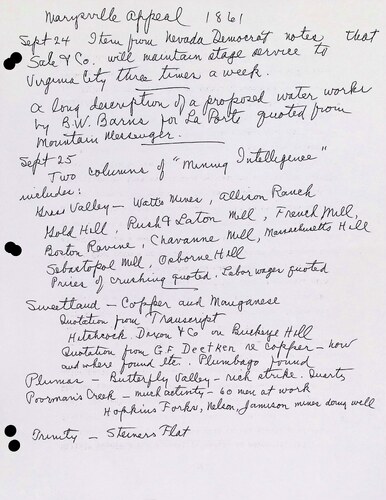 Marysville Appeal 1861
Sept 24 Item from Nevada Democrat notes that
Sale & Co. will maintain stage service to
Virginia City three times a week.
A long description of a proposed water works
by B.W. Barns for La Porte quoted from
Mountain Messenger.
Sept 25
Two columns of "Mining Intelligence"
includes:
Grass Valley — Watts Mines, Allison Ranch
Gold Hill, Rush & Laton Mill, French Mill,
Boston Ravine, Chavanne Mill, Massachusetts Hill
Sebastopol Mill, Osborne Hill
Prices of crushing quoted. Labor wages quoted
Sweetland — Copper and Manganese
Quotation from Transcript
Hitchcock Dixon & Co on Buckeye Hill
Quotation from G.F. Deetken re copper — how
and where found etc. Plumbago found
Plumas — Butterfly Valley — rich strike. Quartz
Poorman's Creek — much activity — 60 men at work
Hopkins Forks, Nelson, Jamison mines doing well
Trinity — Steiners Flat